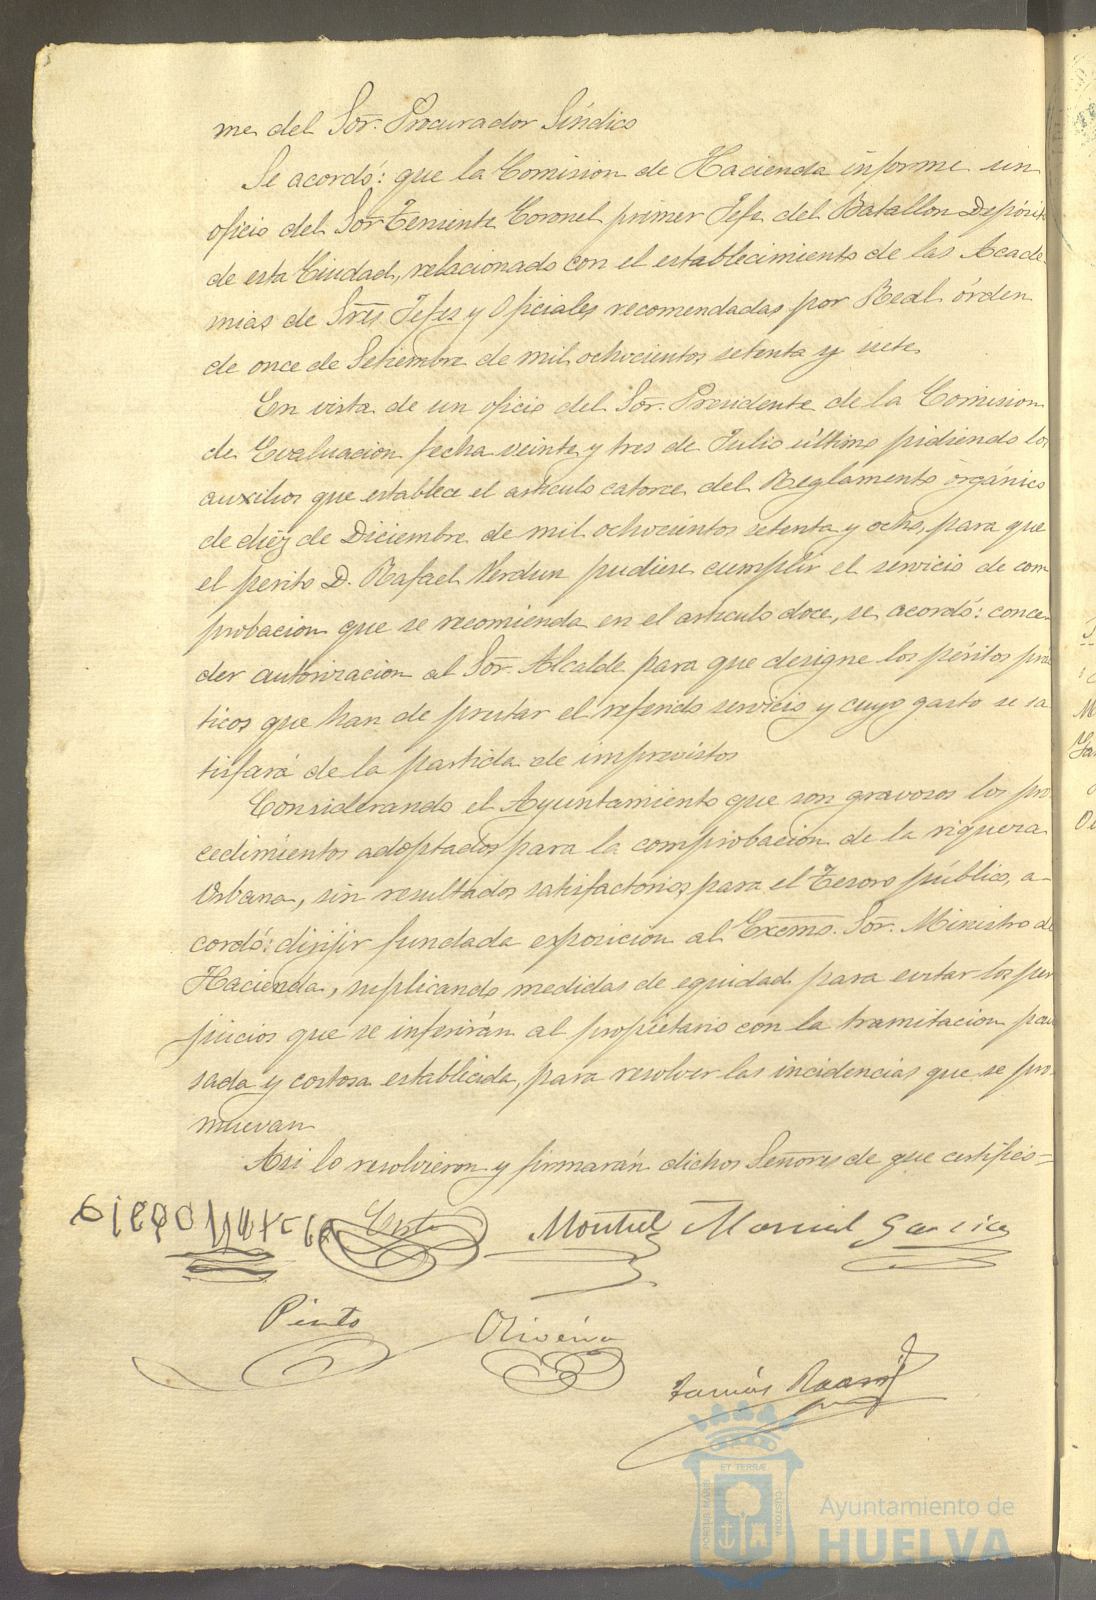 me del Sor. Procurador Síndico
Se acordó: que la Comision de Hacienda informe un
oficio del Sor Teniente Coronel primer Jefe del Batallon Depósit
de esta Ciudad, relacionado con el establecimiento de las Acade
mias de Sres Jefes y Oficiales recomendadas por Real órden
de once de Setiembre de mil ochocientos setenta y siete
En vista de un oficio del Sor. Presidente de la Comision
de Evaluacion fecha veinte y tres de Julio último pidiendo los
auxilios que establece el artículo catorce del Reglamento orgánico
de diez de Diciembre de mil ochocientos setenta y ocho, para que
el perito D. Rafael Verdun pudiese cumplir el servicio de com
probacion que se recomienda en el artículo doce, se acordó: conce
der autorizacion al Sor. Alcalde para que designe los péritos prác
ticos que han de prestar el referido servicio y cuyo gasto se sa
tisfará de la partida de imprevistos
Considerando el Ayuntamiento que son gravosos los pro
cedimientos adoptados para la comprobacion de la riqueza
Urbana, sin resultados satisfactorios para el Tesoro público, a-
cordó: dirijir fundada exposicion al Excmo. Sor. Ministro de
Hacienda, suplicando medidas de equidad para evitar los per
juicios que se inferirán al propietario con la tramitacion pau
sada y costosa establecida, para resolver las incidencias que se pro-
muevan
Asi lo resolvieron y firmarán dichos Señores de que certifico=
Diego Garcia
Montiel Manuel Garcia
Pinto Oliveira
Tomás
ET TERRÆ
PORTUS MARIS
CUSTODIA
Ayuntamiento de
HUELVA